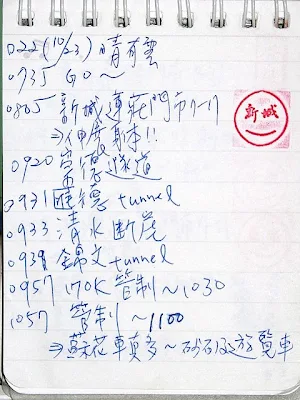 D22(10/23)晴有雲
0735 GO~
0805 新城蓮莊門市7-11
⇒伊度對本!!
0920 崇德隧道
0931 匯德 tunnel
0933 清水斷崖
0939 錦文 tunnel
0957 170K 管制~1030
1057 管制~1100
⇒蘇花車真多~砂石及遊覽車
新城